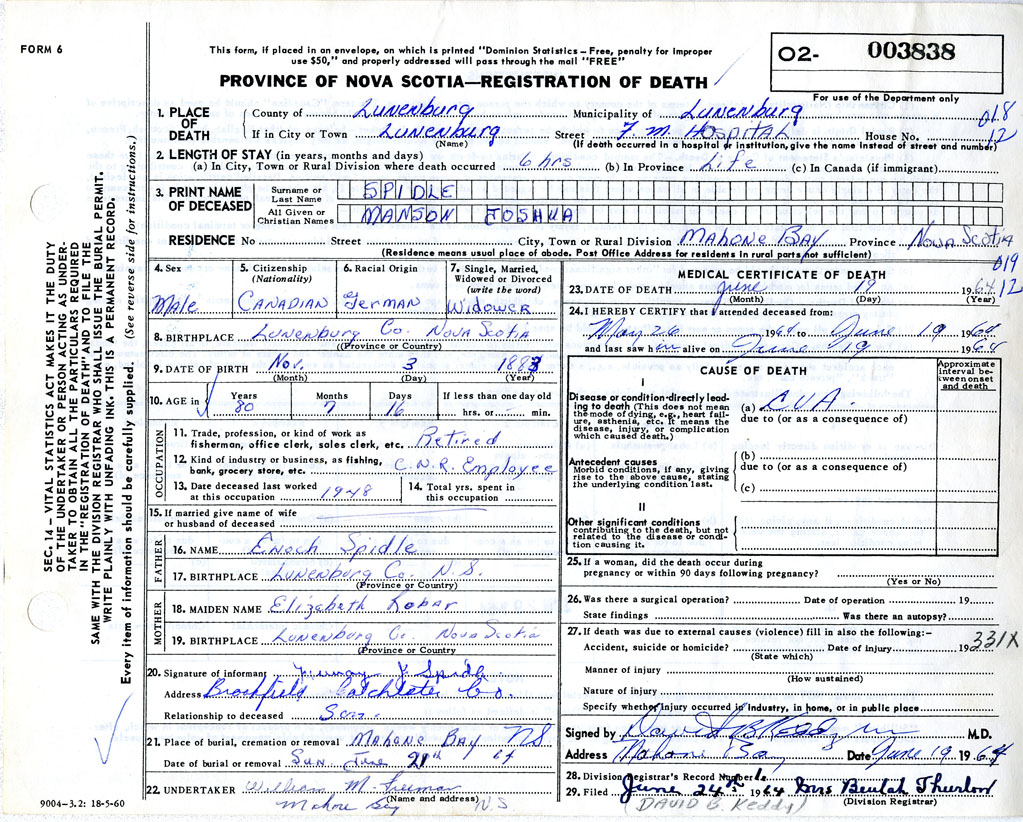 FORM 6
This form, if placed in an envelope, on which is printed "Dominion Statistics – Free, penalty for improper
use $50," and properly addressed will pass through the mail "FREE"
PROVINCE OF NOVA SCOTIA—REGISTRATION OF DEATH
O2- 003838
For use of the Department only
018
12
1. PLACE OF DEATH
County of Lunenburg Municipality of Lunenburg
If in City or Town Lunenburg Street F. M. Hospital House No.
(Name) (If death occurred in a hospital or institution, give the name instead of street and number)
2. LENGTH OF STAY (in years, months and days)
(a) In City, Town or Rural Division where death occurred 6 hrs (b) In Province Life (c) In Canada (if immigrant)
3. PRINT NAME OF DECEASED
Surname or Last Name SPIDLE
All Given or Christian Names MANSON JOSHUA
RESIDENCE No Street City, Town or Rural Division Mahone Bay Province Nova Scotia
(Residence means usual place of abode. Post Office Address for residents in rural parts not sufficient)
019
12
4. Sex
Male
5. Citizenship (Nationality)
Canadian
6. Racial Origin
German
7. Single, Married, Widowed or Divorced (write the word)
Widower
8. BIRTHPLACE Lunenburg Co. Nova Scotia
(Province or Country)
9. DATE OF BIRTH Nov. 3 1883
(Month) (Day) (Year)
10. AGE in Years 80 Months 7 Days 16 If less than one day old hrs. or min.
OCCUPATION
11. Trade, profession, or kind of work as
fisherman, office clerk, sales clerk, etc. Retired
12. Kind of industry or business, as fishing,
bank, grocery store, etc. C.N.R. Employee
13. Date deceased last worked
at this occupation 1948
14. Total yrs. spent in
this occupation
15. If married give name of wife
or husband of deceased
FATHER
16. NAME Enoch Spidle
17. BIRTHPLACE Lunenburg Co. N.S.
(Province or Country)
MOTHER
18. MAIDEN NAME Elizabeth
19. BIRTHPLACE Lunenburg Co. Nova Scotia
(Province or Country
20. Signature of informant Spidle
Address Co.
Relationship to deceased Son.
21. Place of burial, cremation or removal Mahone Bay NS
Date of burial or removal Sun June 21st 64
22. UNDERTAKER William M.
(Name and address)
Mahone Bay N.S.
MEDICAL CERTIFICATE OF DEATH
23. DATE OF DEATH June 19 1964
(Month) (Day) (Year)
24. I HEREBY CERTIFY that I attended deceased from:
May 26 1964 to June 19 1964
and last saw him alive on June 19 1964
CAUSE OF DEATH
Approximate interval between onset and death
I
Disease or condition directly leading to death (This does not mean
the mode of dying, e.g., heart failure, asthenia, etc. It means the
disease, injury, or complication which caused death.)
(a) CVA.
due to (or as a consequence of)
Antecedent causes
Morbid conditions, if any, giving rise to the above cause, stating
the underlying condition last.
(b)
due to (or as a consequence of)
(c)
II
Other significant conditions
contributing to the death, but not related to the disease or condition causing it.
25. If a woman, did the death occur during
pregnancy or within 90 days following pregnancy?
(Yes or No)
26. Was there a surgical operation? Date of operation 19
State findings Was there an autopsy?
27. If death was due to external causes (violence) fill in also the following:–
331X
Accident, suicide or homicide? Date of injury 19
(State which)
Manner of injury
(How sustained)
Nature of injury
Specify whether injury occurred in industry, in home, or in public place
Signed by David B Keddy M.D.
Address Mahone Bay Date June 19 1964
28. Division Registrar's Record Number
29. Filed June 24th 1964 Mrs Beulah Thurlow
(DAVID B. Keddy) (Division Registrar)
SEC. 14 – VITAL STATISTICS ACT MAKES IT THE DUTY
OF THE UNDERTAKER OR PERSON ACTING AS UNDERTAKER
TO OBTAIN ALL THE PARTICULARS REQUIRED
IN THE "REGISTRATION OF DEATH" AND TO FILE THE
SAME WITH THE DIVISION REGISTRAR WHO SHALL ISSUE THE BURIAL PERMIT.
WRITE PLAINLY WITH UNFADING INK. THIS IS A PERMANENT RECORD.
Every item of information should be carefully supplied. (See reverse side for instructions.)
9004–3.2: 18-5-60